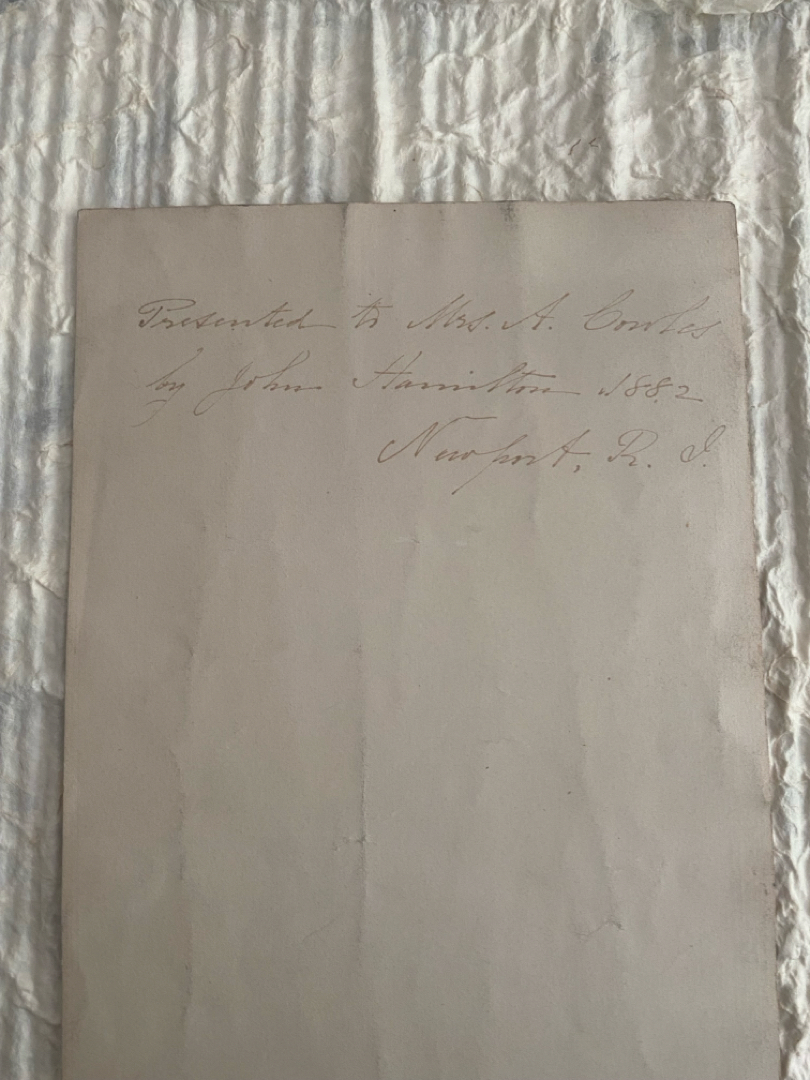 Presented to Mrs. A. Cowles
by John Hamilton 1882
Newport, R. I.